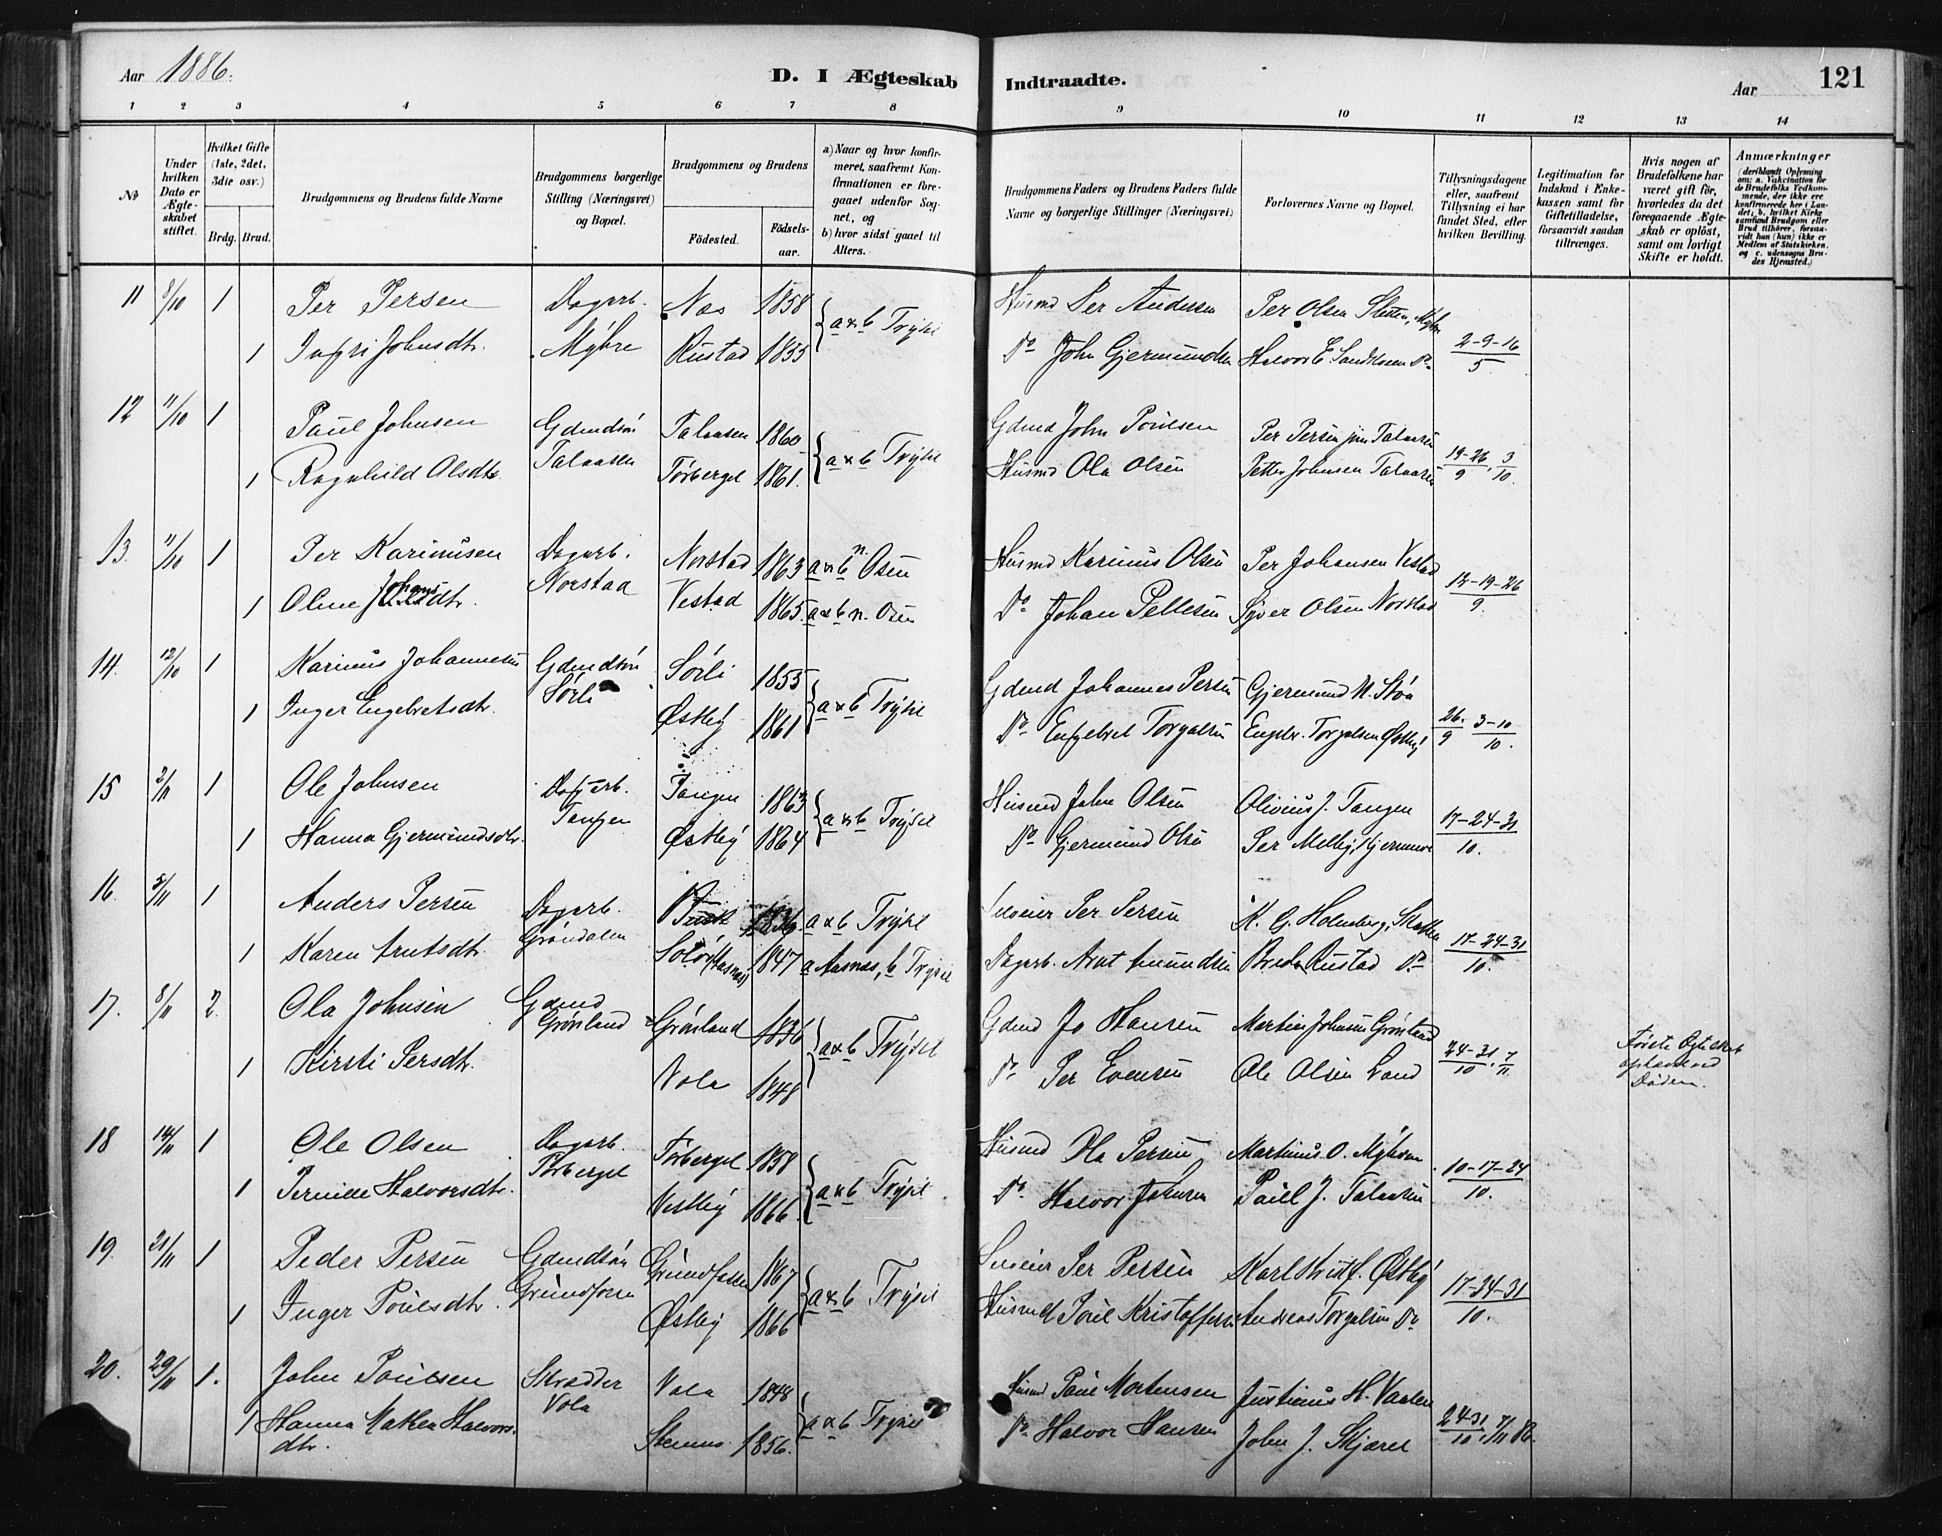 Aar 1886.
D. I Ægteskab Indtraadte.
Aar 121
1 2 3 4 5 6 7 8 9 10 11 12 13 14
No
Under hvilken Dato er Ægteskabet stiftet.
Hvilket Gifte (1ste, 2det, 3die osv.)
Brdg. Brud.
Brudgommens og Brudens fulde Navne
Brudgommens borgerlige Stilling (Næringsvei) og Bopæl.
Brudgommens og Brudens
Fødested. Fødselsaar.
a) Naar og hvor konfirmeret, saafremt Konfirmationen er foregaaet udenfor Sognet, og
b) hvor sidst gaaet til Alters.
Brudgommens Faders og Brudens Faders fulde Navne og borgerlige Stillinger (Næringsvei)
Forlovernes Navne og Bopæl.
Tillysningsdagene eller, saafremt Tillysning ei har fundet Sted, efter hvilken Bevilling.
Legitimation for Indskud i Enkekassen samt for Giftetilladelse, forsaavidt saadan tiltrænges.
Hvis nogen af Brudefolkene har været gift før, hvorledes da det foregaaende Ægteskab er opløst, samt om lovligt Skifte er holdt.
Anmærkninger (deriblandt Oplysning om: a. Vakcination for de Brudefolks Vedkommende, der ikke ere konfirmerede her i Landet; b. hvilket Kirkesamfund Brudgom eller Brud tilhører, forsaavidt han (hun) ikke er Medlem af Statskirken, og c. udensogns Brudes Hjemsted.)
11 8/10 1 Per Persen Dagarb. Næs 1858 a & b Trysil Husmd Per Andersen Per Olsen Sletten,
1 Ingri Johnsdtr. Myhre Rustad 1855 Do John Gjermundsen Halvor E. Do 2-9-16/5
12 11/10 1 Paul Johnsen Gdmdsön Talaasen 1860 a & b Trysil Gdmd John Poulsen Per Persen jun Talaasen
1 Ragnhild Olsdtr. Talaasen Törberget 1861. Husmd Ola Olsen Petter Johnsen Talaasen 19-26/9, 3/10.
13. 11/10 1 Per Karinusen Dagarb. Norstad 1863 a & b n. Osen Husmd Karinus Olsen Per Johansen Vestad
1 Oline Johansdtr. Norstad Vestad 1865. a & b n. Osen Do Johan Pellesen Syver Olsen Norstad 12-19-26/9.
14. 12/10 1 Karinus Johannesen Gdmdsön Sörli 1855 a & b Trysil Gdmd Johannes Persen Gjermund N. Stöa
1 Inger Engebretsdtr. Sörli Östby 1861 Do Engebret Torgalsen Engebr. Torgalsen Östby 26./9 3-10/10.
15 2/11 1 Ole Johnsen Dagarb. Tangen 1863 a & b Trysil Husmd John Olsen Olivius J. Tangen
1 Hanna Gjermundsdtr. Tangen Östby 1864 Do Gjermund Olsen Per Melby, 17-24-31/10.
16. 1 Anders Persen Dagarb. a & b Trysil Per Persen K. G. Holmberg,
1 Karen Arntsdtr. Gröndalen Solör (Aasnæs) 1847 a Aasnæs, b Trysil Dagarb. Arnt Amundsen Rustad Do 17-24-31/10.
17. 8/11 2. Ola Johnsen Gdmd Grönland 1836 a & b Trysil Gdmd Jo Hansen Martin Johnsen Grönland
1 Kirsti Persdtr. Grönland Vola 1848 Do Per Evensen Ole Olsen Lund 24-31/10, 7/11. Første Ægteskab opløst ved Døden.
18 14/11 1 Ole Olsen Dagarb. Törberget 1858 a & b Trysil Husmd Ola Persen Martinus O.
1 Pernille Halvorsdtr. Törberget Vestby 1866. Do Halvor Johnsen Paul J. Talaasen 10-17-24/10.
19. 21/11 1 Peder Persen Gdmdsön Grundfossen 1867 a & b Trysil Per Persen Karl Kristf. Östby
1 Inger Poulsdtr. Grundfossen Östby 1866 Husmd Poul Kristoffersen Andreas Torgalsen Do 17-24-31/10.
20. 29/11 1. John Poulsen Skrædder Vola 1848 a & b Trysil Husmd Poul Mortensen Justinus H.
1 Hanna Halvorsdtr. Vola 1856. Do Halvor Hansen John J. Skjæret 24-31/10, 7/11